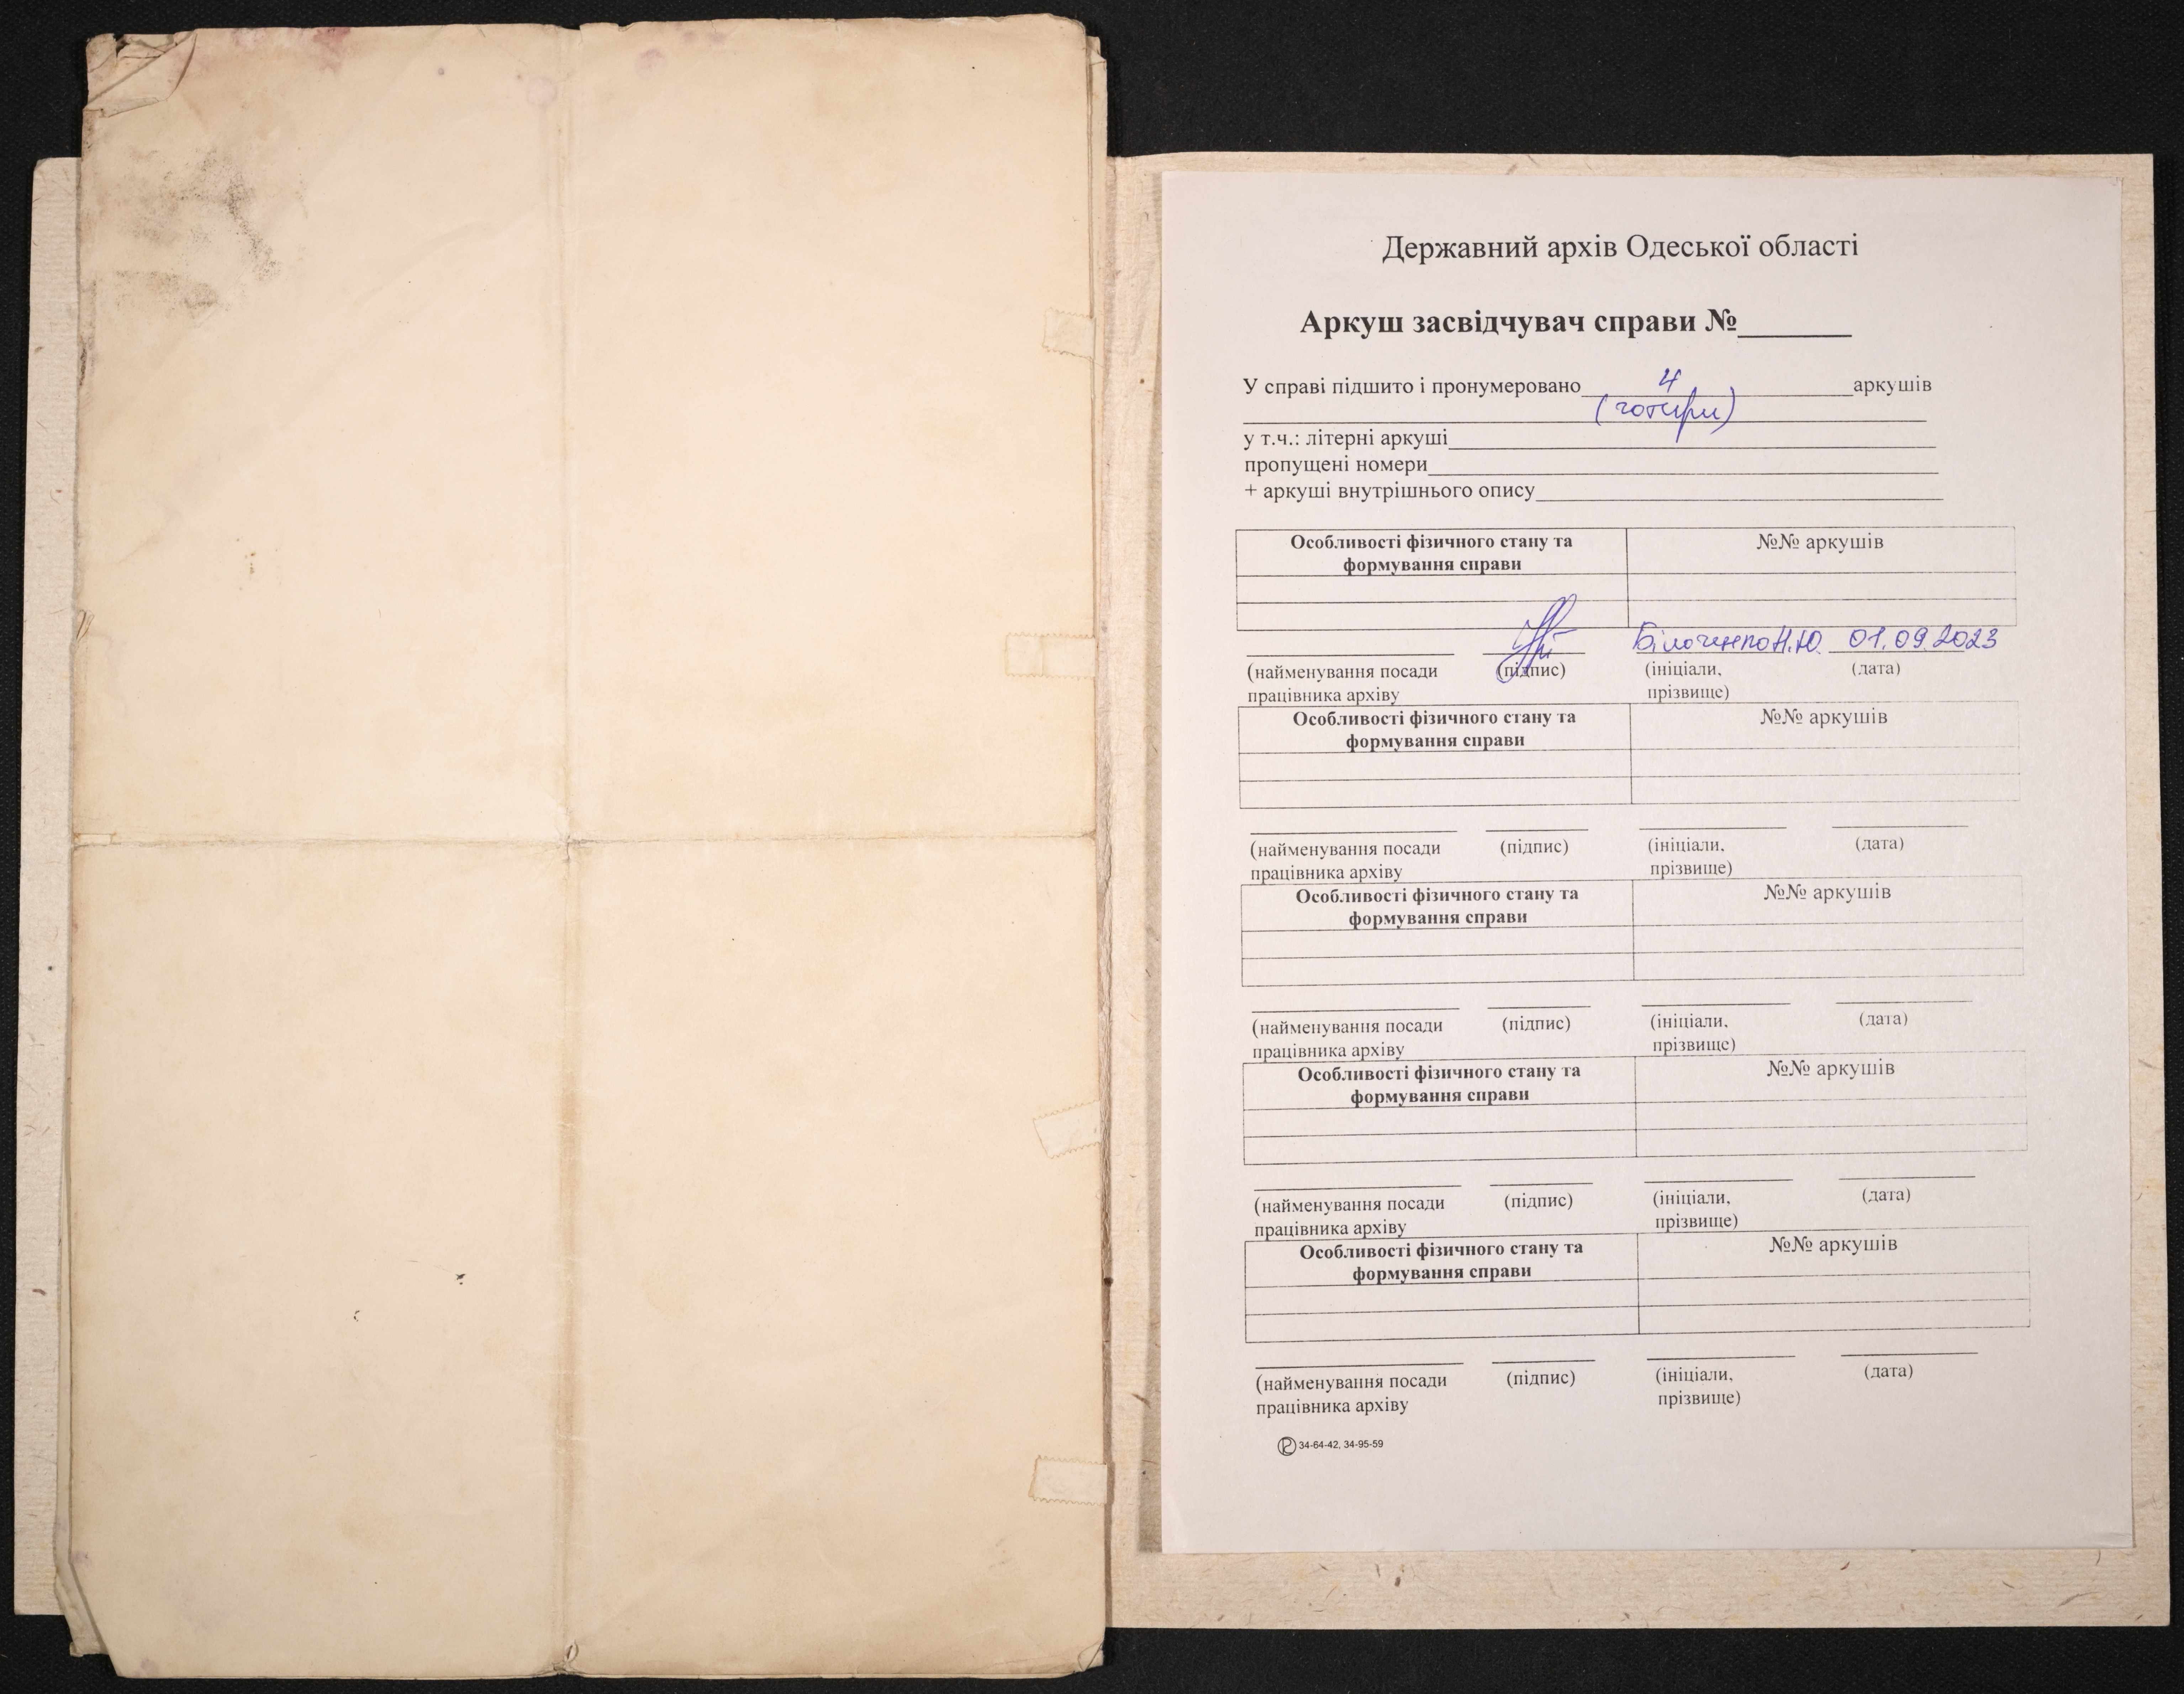 Державний архів Одеської області
Аркуш засвідчувач справи №______
У справі підшито і пронумеровано 4 аркушів
(чотири)
у т.ч.: літерні аркуші
пропущені номери
+ аркуші внутрішнього опису
Особливості фізичного стану та №№ аркушів
формування справи
Н.Ю. 01.09.2023
(найменування посади (підпис) (ініціали, (дата)
працівника архіву прізвище)
Особливості фізичного стану та №№ аркушів
формування справи
(найменування посади (підпис) (ініціали, (дата)
працівника архіву прізвище)
Особливості фізичного стану та №№ аркушів
формування справи
(найменування посади (підпис) (ініціали, (дата)
працівника архіву прізвище)
Особливості фізичного стану та №№ аркушів
формування справи
(найменування посади (підпис) (ініціали, (дата)
працівника архіву прізвище)
Особливості фізичного стану та №№ аркушів
формування справи
(найменування посади (підпис) (ініціали, (дата)
працівника архіву прізвище)
34-64-42, 34-95-59